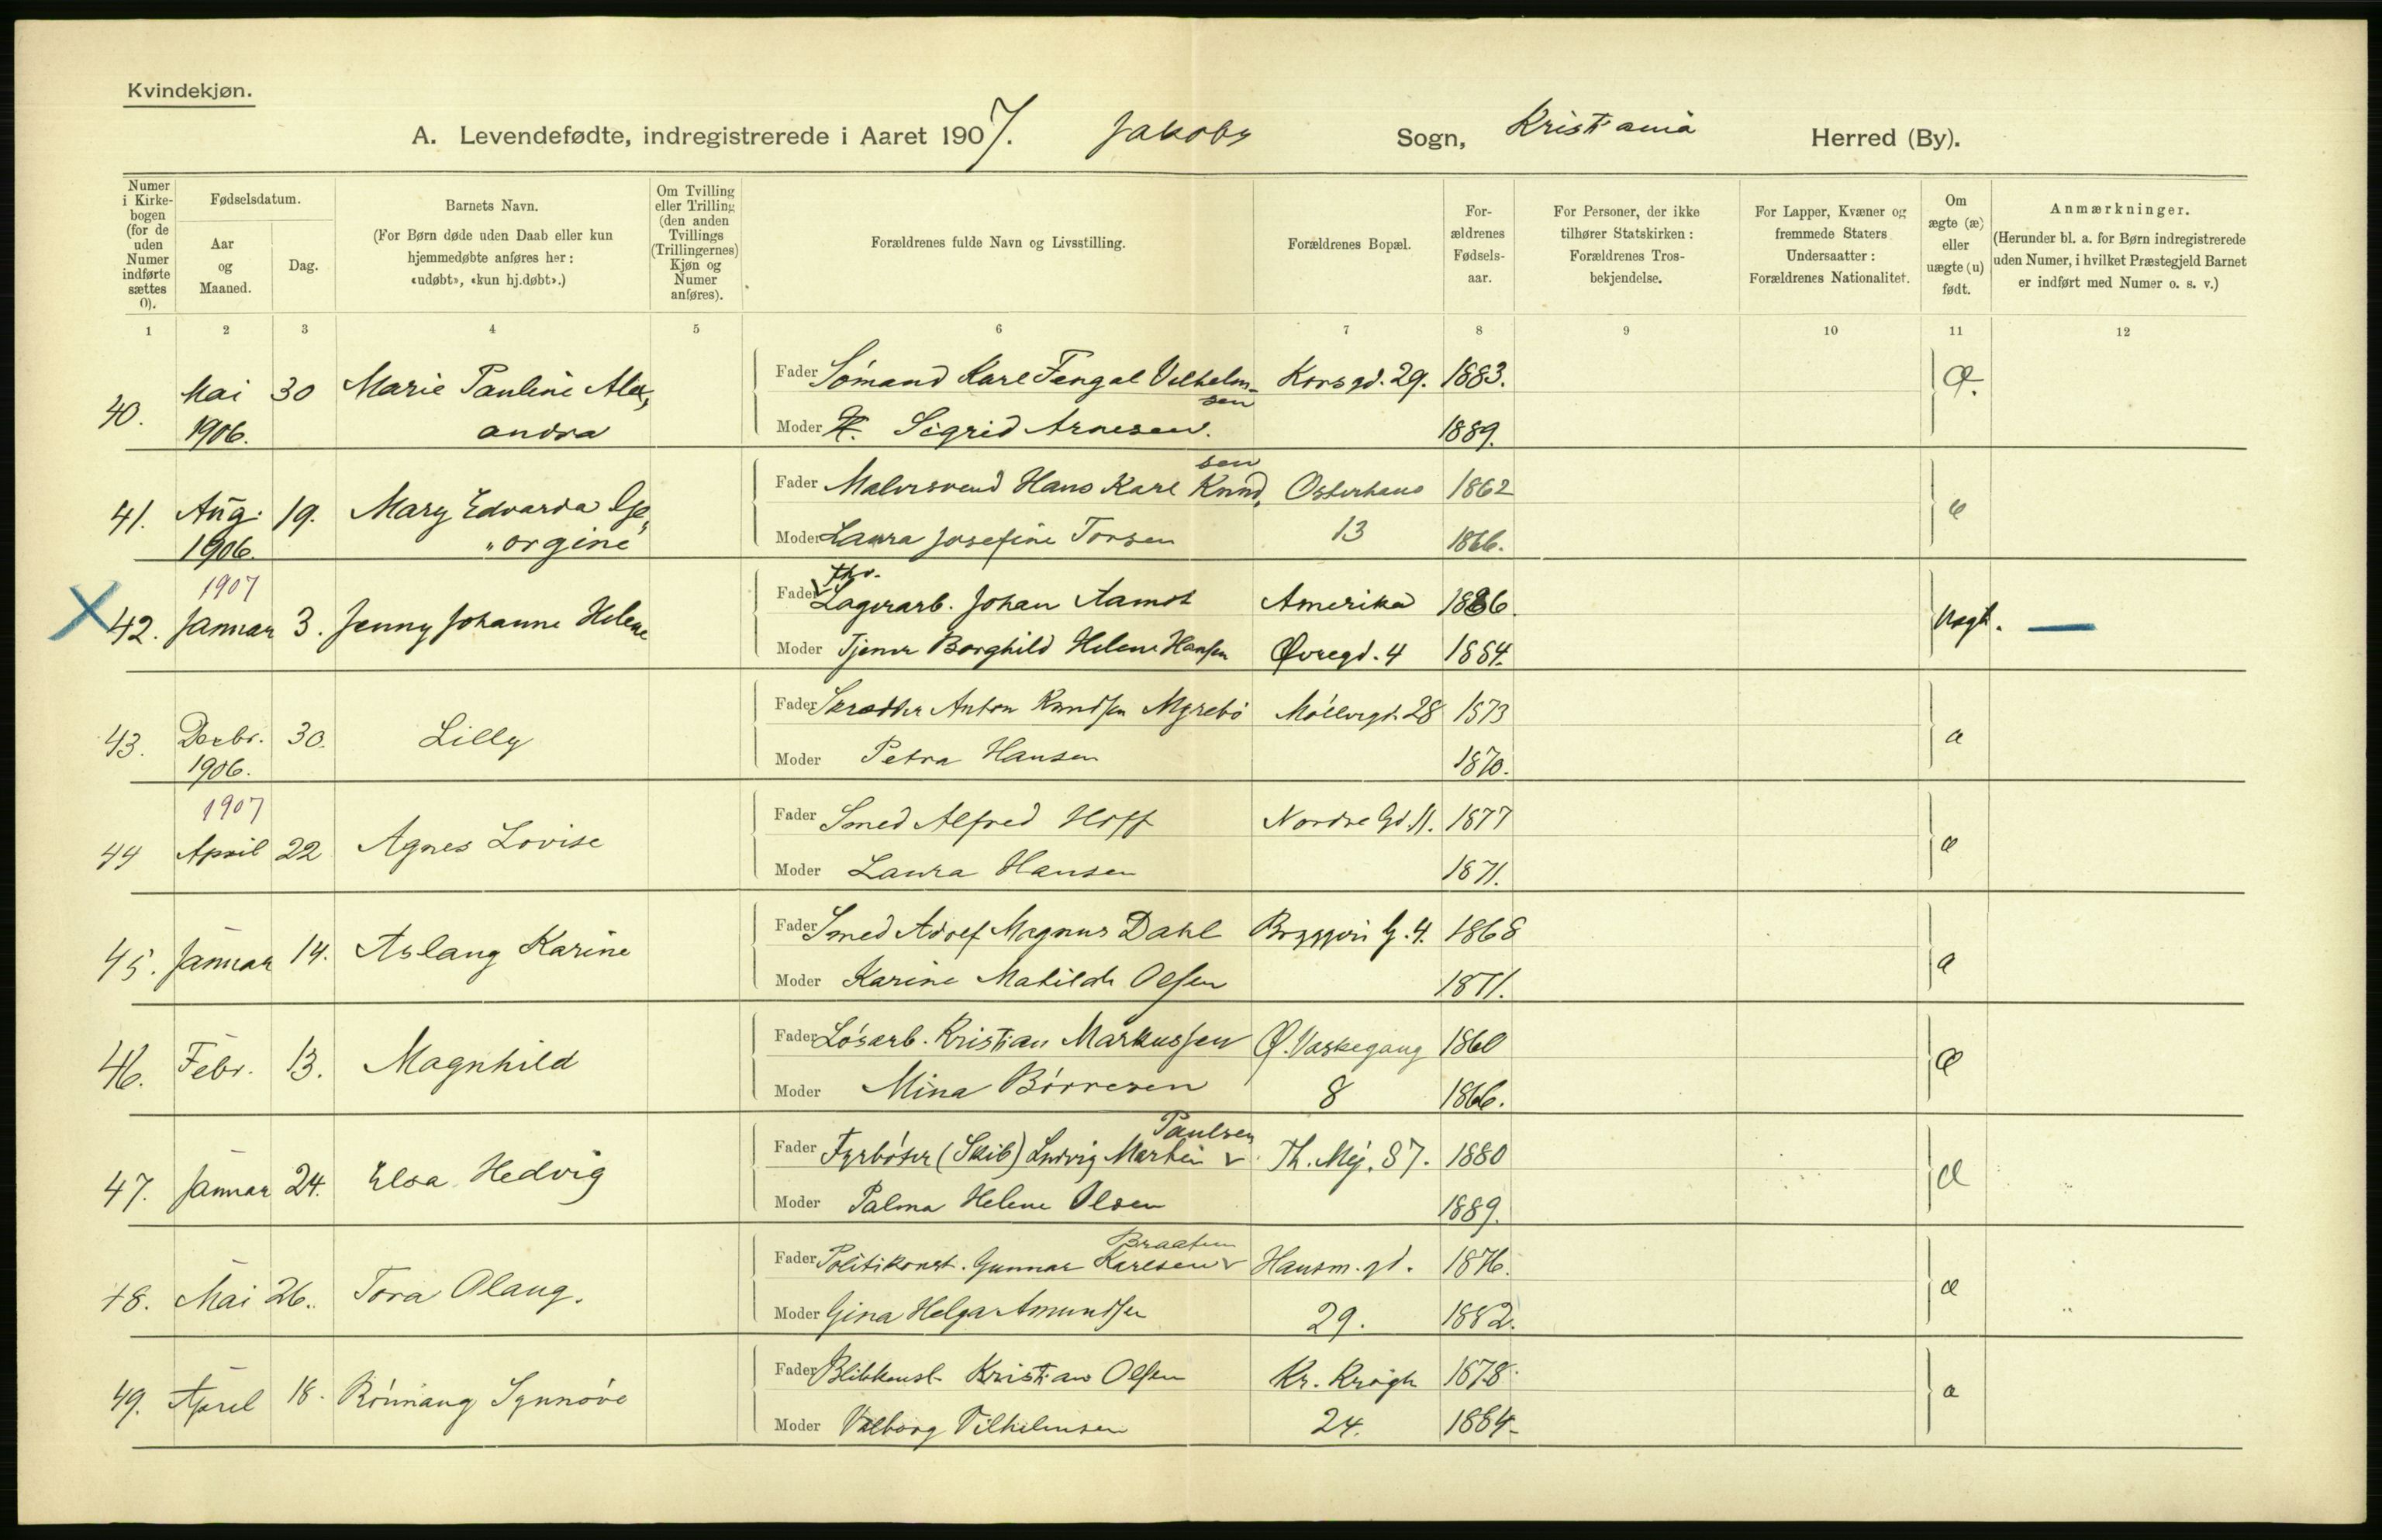 Kvindekjøn.
A. Levendefødte, indregistrerede i Aaret 1907. Jakobs Sogn, Kristiania Herred (By).
Numer i Kirkebogen (for de uden Numer indførte sættes 0).
Fødselsdatum.
Aar og Maaned.
Dag.
Barnets Navn.
(For Børn døde uden Daab eller kun hjemmedøbte anføres her: «udøbt», «kun hj.døbt».)
Om Tvilling eller Trilling (den anden Tvillings (Trillingernes) Kjøn og Numer anføres).
Forældrenes fulde Navn og Livsstilling.
Forældrenes Bopæl.
Forældrenes Fødselsaar.
For Personer, der ikke tilhører Statskirken: Forældrenes Trosbekjendelse.
For Lapper, Kvæner og fremmede Staters Undersaatter: Forældrenes Nationalitet.
Om ægte (æ) eller uægte (u) født.
Anmærkninger.
(Herunder bl. a. for Børn indregistrerede uden Numer, i hvilket Præstegjeld Barnet er indført med Numer o. s. v.)
1 2 3 4 5 6 7 8 9 10 11 12
40. Mai 1906. 30 Marie Pauline Alexandra
Fader Sömand Karl Fengal Vilhelmsen Korsgd. 29. 1883. Æ.
Moder H. Sigrid Arnesen. 1889.
41. Aug. 1906. 19. Mary Edvarda Georgine
Fader Malersvend Hans Karl Knudsen Osterhaus 1862 æ
Moder Laura Josefine Torsen 13 1866.
X 42. 1907 Januar 3. Jenny Johanne Helene
Fader Lagerarb. Johan Aamot Amerika 1886. Uægt. —
Moder Tjener Borghild Helene Hansen Øvregd. 4 1884.
43. Decbr. 1906. 30. Lilly
Fader Skrædder Anton Knudsen Myrebö Möllergd. 28 1873 æ
Moder Petra Hansen 1870.
44 1907 April 22 Agnes Lovise
Fader Smed Alfred Hoff Nordre Gd. 11. 1877 æ
Moder Laura Hansen 1871.
45. Januar 14. Aslaug Karine
Fader Smed Adolf Magnus Dahl Bryggeri G. 4. 1868 æ
Moder Karine Matilde Olsen 1871.
46. Febr. 13. Magnhild
Fader Lösarb. Kristian Markussen Ø. Vaskegang 1860 Æ
Moder Mina Börresen 8 1866.
47. Januar 24. Elsa Hedvig
Fader Fyrböter (Skib) Ludvig Martin Paulsen Th. Mej. 87. 1880 Æ
Moder Palma Helene Olsen 1889.
48. Mai 26. Tora Olaug.
Fader Politikonst. Gunnar Karlsen Braaten Hausm. gd. 1876. æ
Moder Gina Helga Amundsen 29. 1882.
49. April 18. Rönnaug Synnöve
Fader Blikkensl. Kristian Olsen Kr. Krogh 1878. æ
Moder Valborg Vilhelmsen 24. 1884.